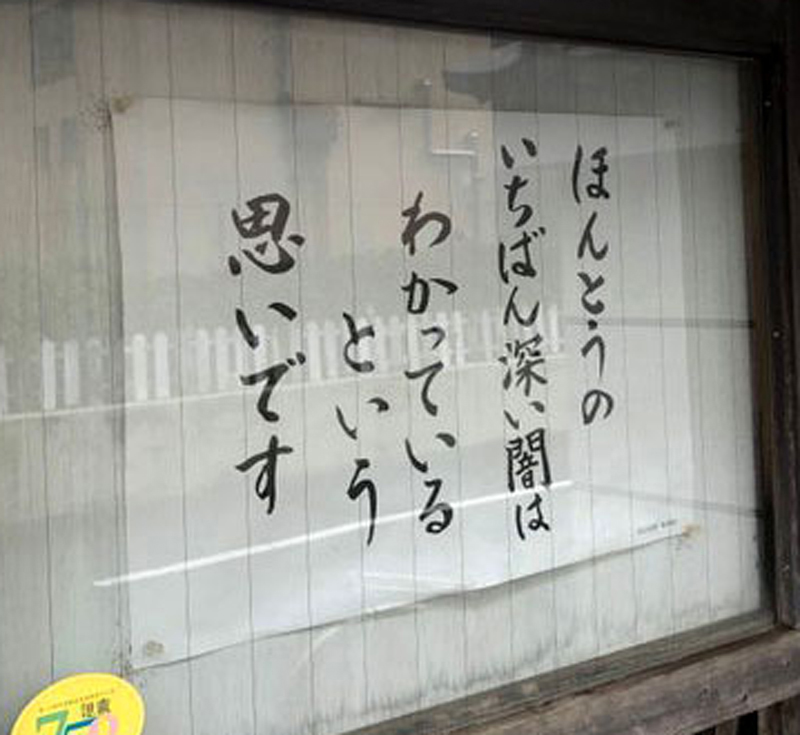 ほんとうの
いちばん深い闇は
わかっている
という
思いです